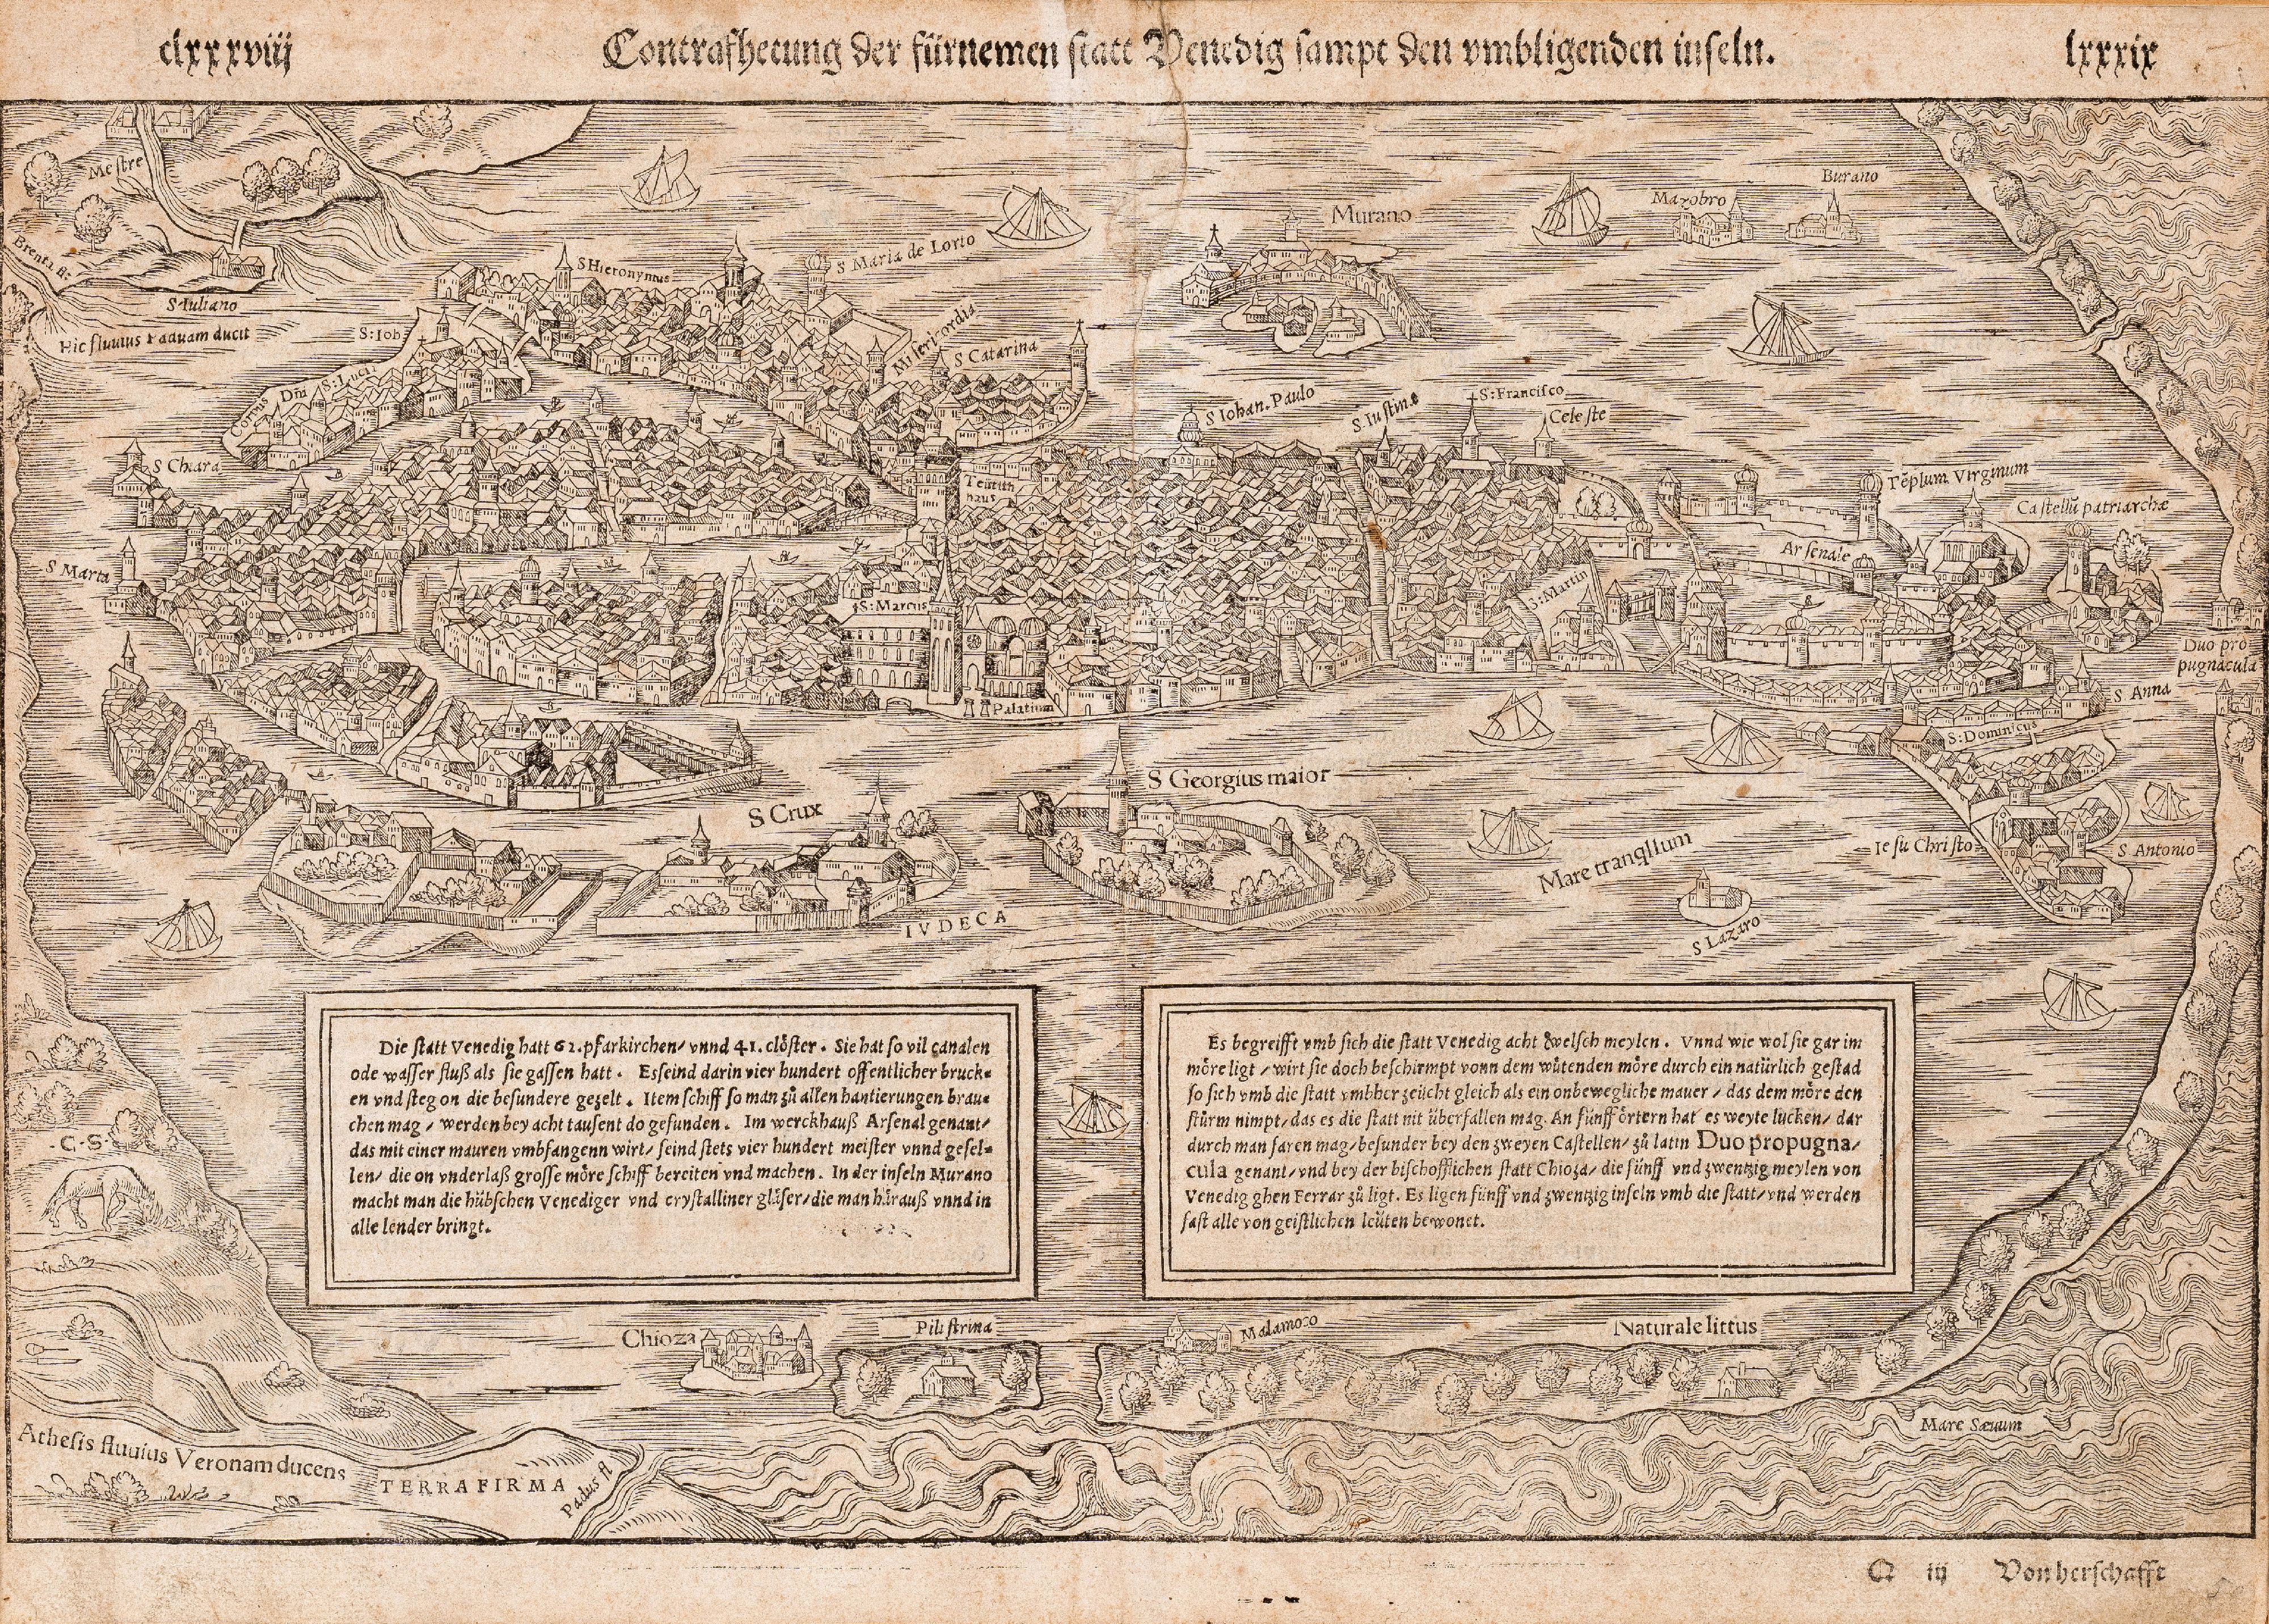 clxxxviij
Contrafhetung der fürnemen statt Venedig sampt den vmbligenden inseln.
lxxxix
Mestre
Brenta fl:
S Iuliano
Hic fluuius Paduam ducit
S:Ioh
S Hieronymus
S Maria de Lorto
Murano
Mazobro
Burano
Misericordia
S Catarina
Corpus Dñi
S:Luci
S Iohan. Paulo
S Iustinæ
S:Francisco
Celeste
S Chiara
Teütsch
haus
Tẽplum Virginum
Castellũ patriarchæ
Arsenale
S Marta
S:Marcus
S:Martin
Duo pro
pugnacula
S Anna
Palatium
S:Dominicus
S Georgius maior
S Crux
Mare tranqllum
Iesu Christo
S Antonio
S Lazaro
IVDECA
Die statt Venedig hatt 62. pfarkirchen/ vnnd 41. clöster. Sie hat so vil canalen
ode wasser fluß als sie gassen hatt. Es seind darin vier hundert offentlicher bruck=
en vnd steg on die besundere gezelt. Item schiff so man zů allen hantierungen brau=
chen mag/ werden bey acht tausent do gefunden. Im werckhauß Arsenal genant/
das mit einer mauren vmbfangenn wirt/ seind stets vier hundert meister vnnd gesel=
len/ die on vnderlaß grosse möre schiff bereiten vnd machen. In der inseln Murano
macht man die hübschen Venediger vnd crystalliner gläser/ die man hårauß vnnd in
alle lender bringt.
Es begreifft vmb sich die statt Venedig acht welsch meylen. Vnnd wie wol sie gar im
möre ligt/ wirt sie doch beschirmpt vonn dem wütenden möre durch ein natürlich gestad
so sich vmb die statt vmbher zeücht gleich als ein onbewegliche mauer/ das dem möre den
stürm nimpt/ das es die statt nit überfallen mag. An fünff örtern hat es weyte lucken/ dar
durch man faren mag/ besunder bey den zweyen Castellen/ zů latin Duo propugna/
cula genant/ vnd bey der bischofflichen statt Chioza/ die fünff vnd zwentzig meylen von
Venedig ghen Ferrar zů ligt. Es ligen fünff vnd zwentzig inseln vmb die statt/ vnd werden
fast alle von geistlichen leüten bewonet.
·C·S·
Chioza
Pilistrina
Malamoco
Naturale littus
Mare Sæuum
Athesis fluuius Veronam ducens
TERRA FIRMA
Padus fl
Q iij
Von herschafft